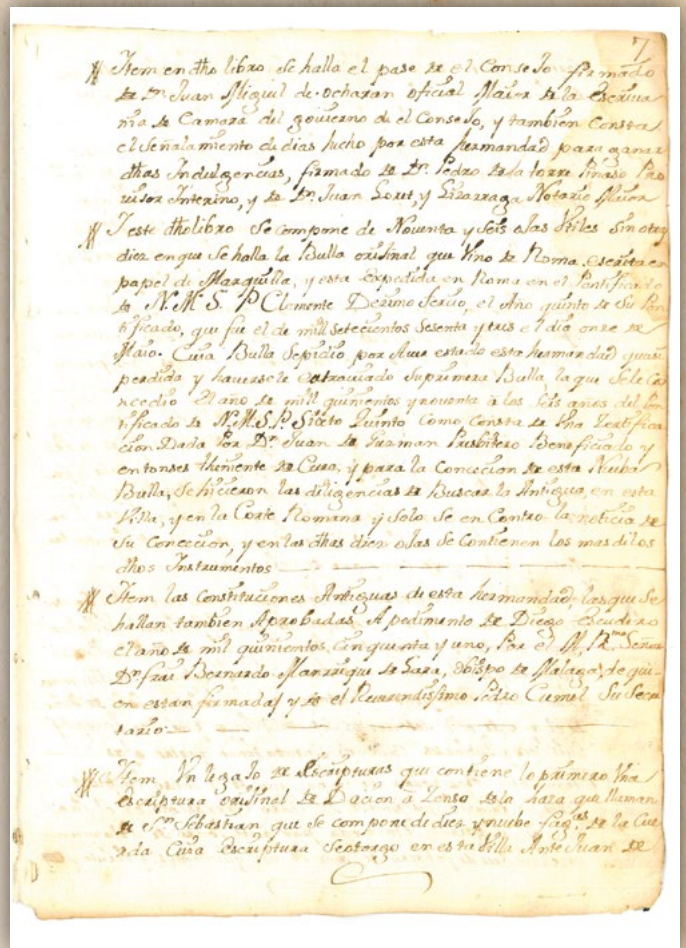 7
Item en dho libro se halla el pase de el Consejo firmado
de Dn. Juan Miguel de ocharan oficial Maior de la escriua
nia de Camara del gouierno de el Consejo, y tambien Consta
el Señalamiento de dias hecho por esta hermandad para ganar
dhas Indulgencias, firmado de Dr. Pedro de la torre Pinaso Pro
uisor Interino, y de Dn. Juan Loret, y Lizarraga Notario Maior
Y este dho libro Se compone de Noventa y Seis ojas Vtiles Sin otras
diez en que Se halla la Bulla orijinal que Vino de Roma escrita en
papel de Marquilla, y esta expedida en Roma en el Pontificado
de N. M. S. P. Clemente Dezimo Terzio, el Año quinto de Su Pon
tificado, que fue el de mill setecientos Sesenta y tres el dia onze de
Maio. Cuia Bulla Se pidio por Auer estado esta hermandad quasi
perdida y haversele extrauiado Su primera Bulla, la que Se le Con
cedio el año de mill quinientos y noventa a los Seis años del Pon
tificado de N. M. S. P. Sixto Quinto Como consta de Vna Zertifica
cion Dada Por Dn. Juan de Guzman Presbitero Beneficiado y
entonses theniente de Cura, y para la Concecion de esta Nueba
Bulla, Se hicieron las diligencias de Buscar la Antigua, en esta
Villa, y en la Corte Romana y Solo Se en Contro la noticia de
Su Concecion, y en las dhas diez ojas Se Contienen los mas de los
dhos Instrumentos
Item las Constituciones Antiguas de esta hermandad, las que Se
hallan tambien Aprobadas, A pedimento de Diego Escudero
el año de mil quinientos, cinquenta y uno, Por el M. Rmo. Señor
Dn. frai Bernardo Manrrique de Lara, Obispo de Malaga, de qui-
en estan firmadas y de el Reuerendissimo Pedro Cumel Su Secre
tario
Item Vn legajo de Escripturas que contiene lo primero Vna
escriptura orijinal de Dacion a Zenso de la haza que llaman
de Sn. Sebastian que Se compone de diez y nuebe fagas. de la Cue
rda Cuia Escriptura Se otorgo en esta Villa Ante Juan de